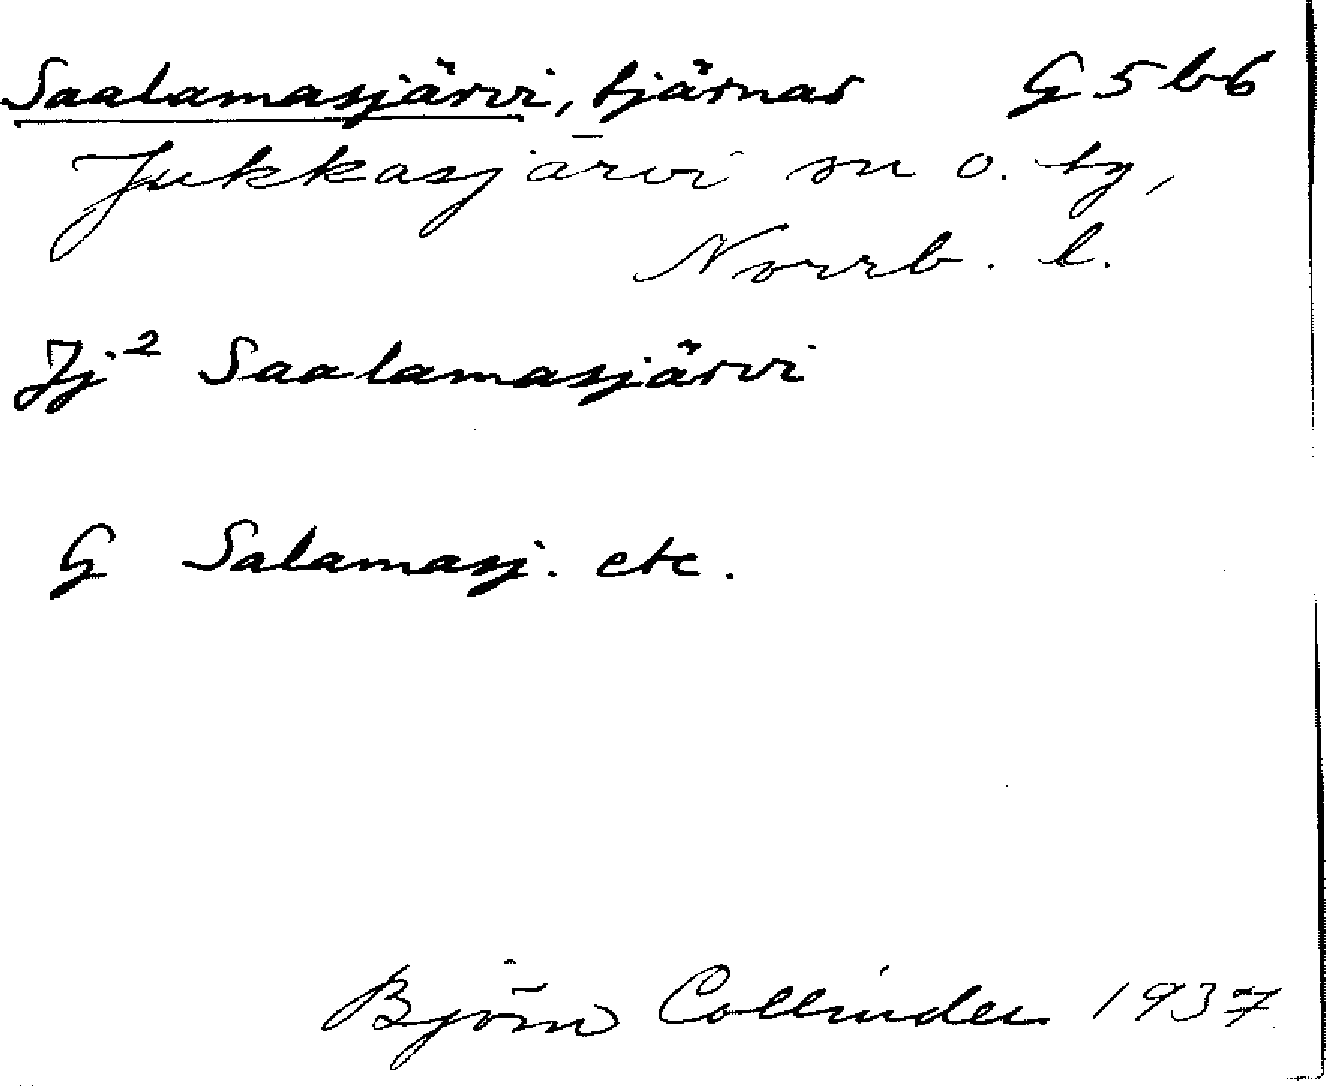 Saalamasjärvi, tjärnar G 5 b 6
Jukkasjärvi sn o. tg,
Norrb. l.
Jj² Saalamasjärvi
G Salamasj. etc.
Björn Collinder 1937